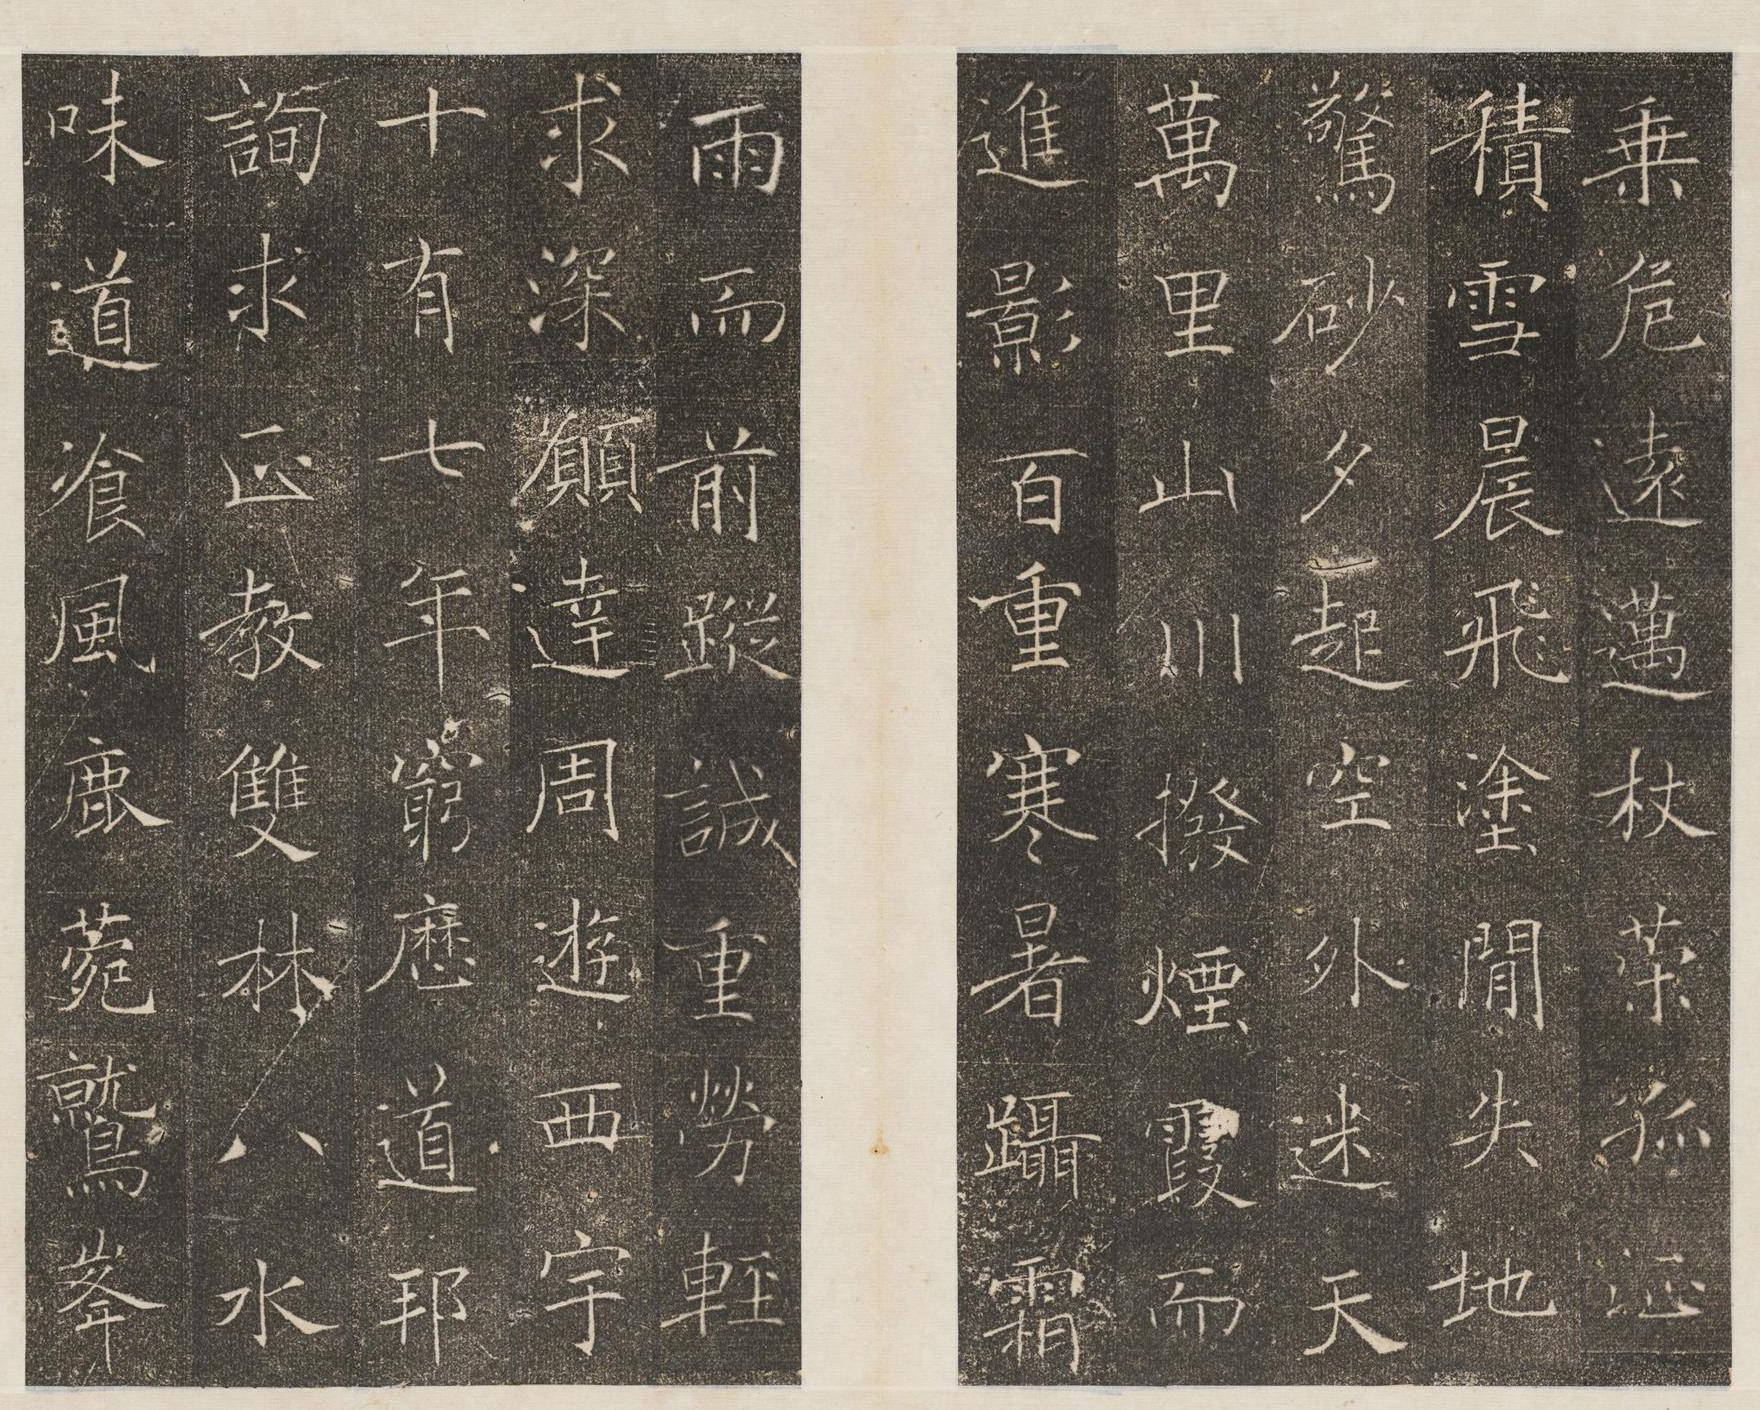 乗危遠邁杖䇿孤征
積雪晨飛塗閒失地
驚砂夕起空外迷天
萬里山川撥煙霞而
進影百重寒暑躡霜
雨而前蹤誠重勞輕
求深願達周遊西宇
十有七年窮歷道邦
詢求正教雙林八水
味道飡風鹿菀鷲峯